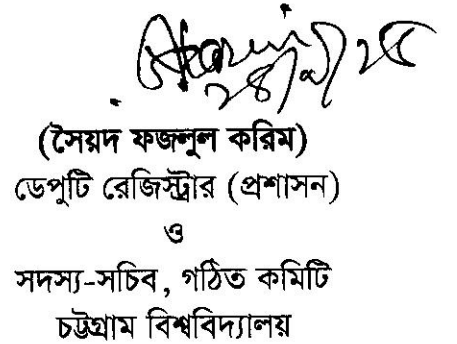 (সৈয়দ ফজলুল করিম)
ডেপুটি রেজিস্ট্রার (প্রশাসন)
ও
সদস্য-সচিব, গঠিত কমিটি
চট্টগ্রাম বিশ্ববিদ্যালয়